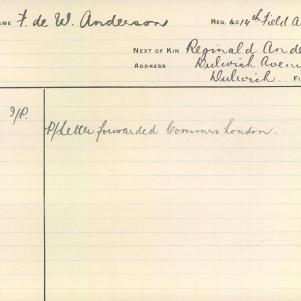 NAME F. de W. Anderson
REG. &C 14th Field A
NEXT OF KIN Reginald Ande
ADDRESS Dulwich Avenu
Dulwich. Fi
9/P. P/Letter forwarded Commrs London.